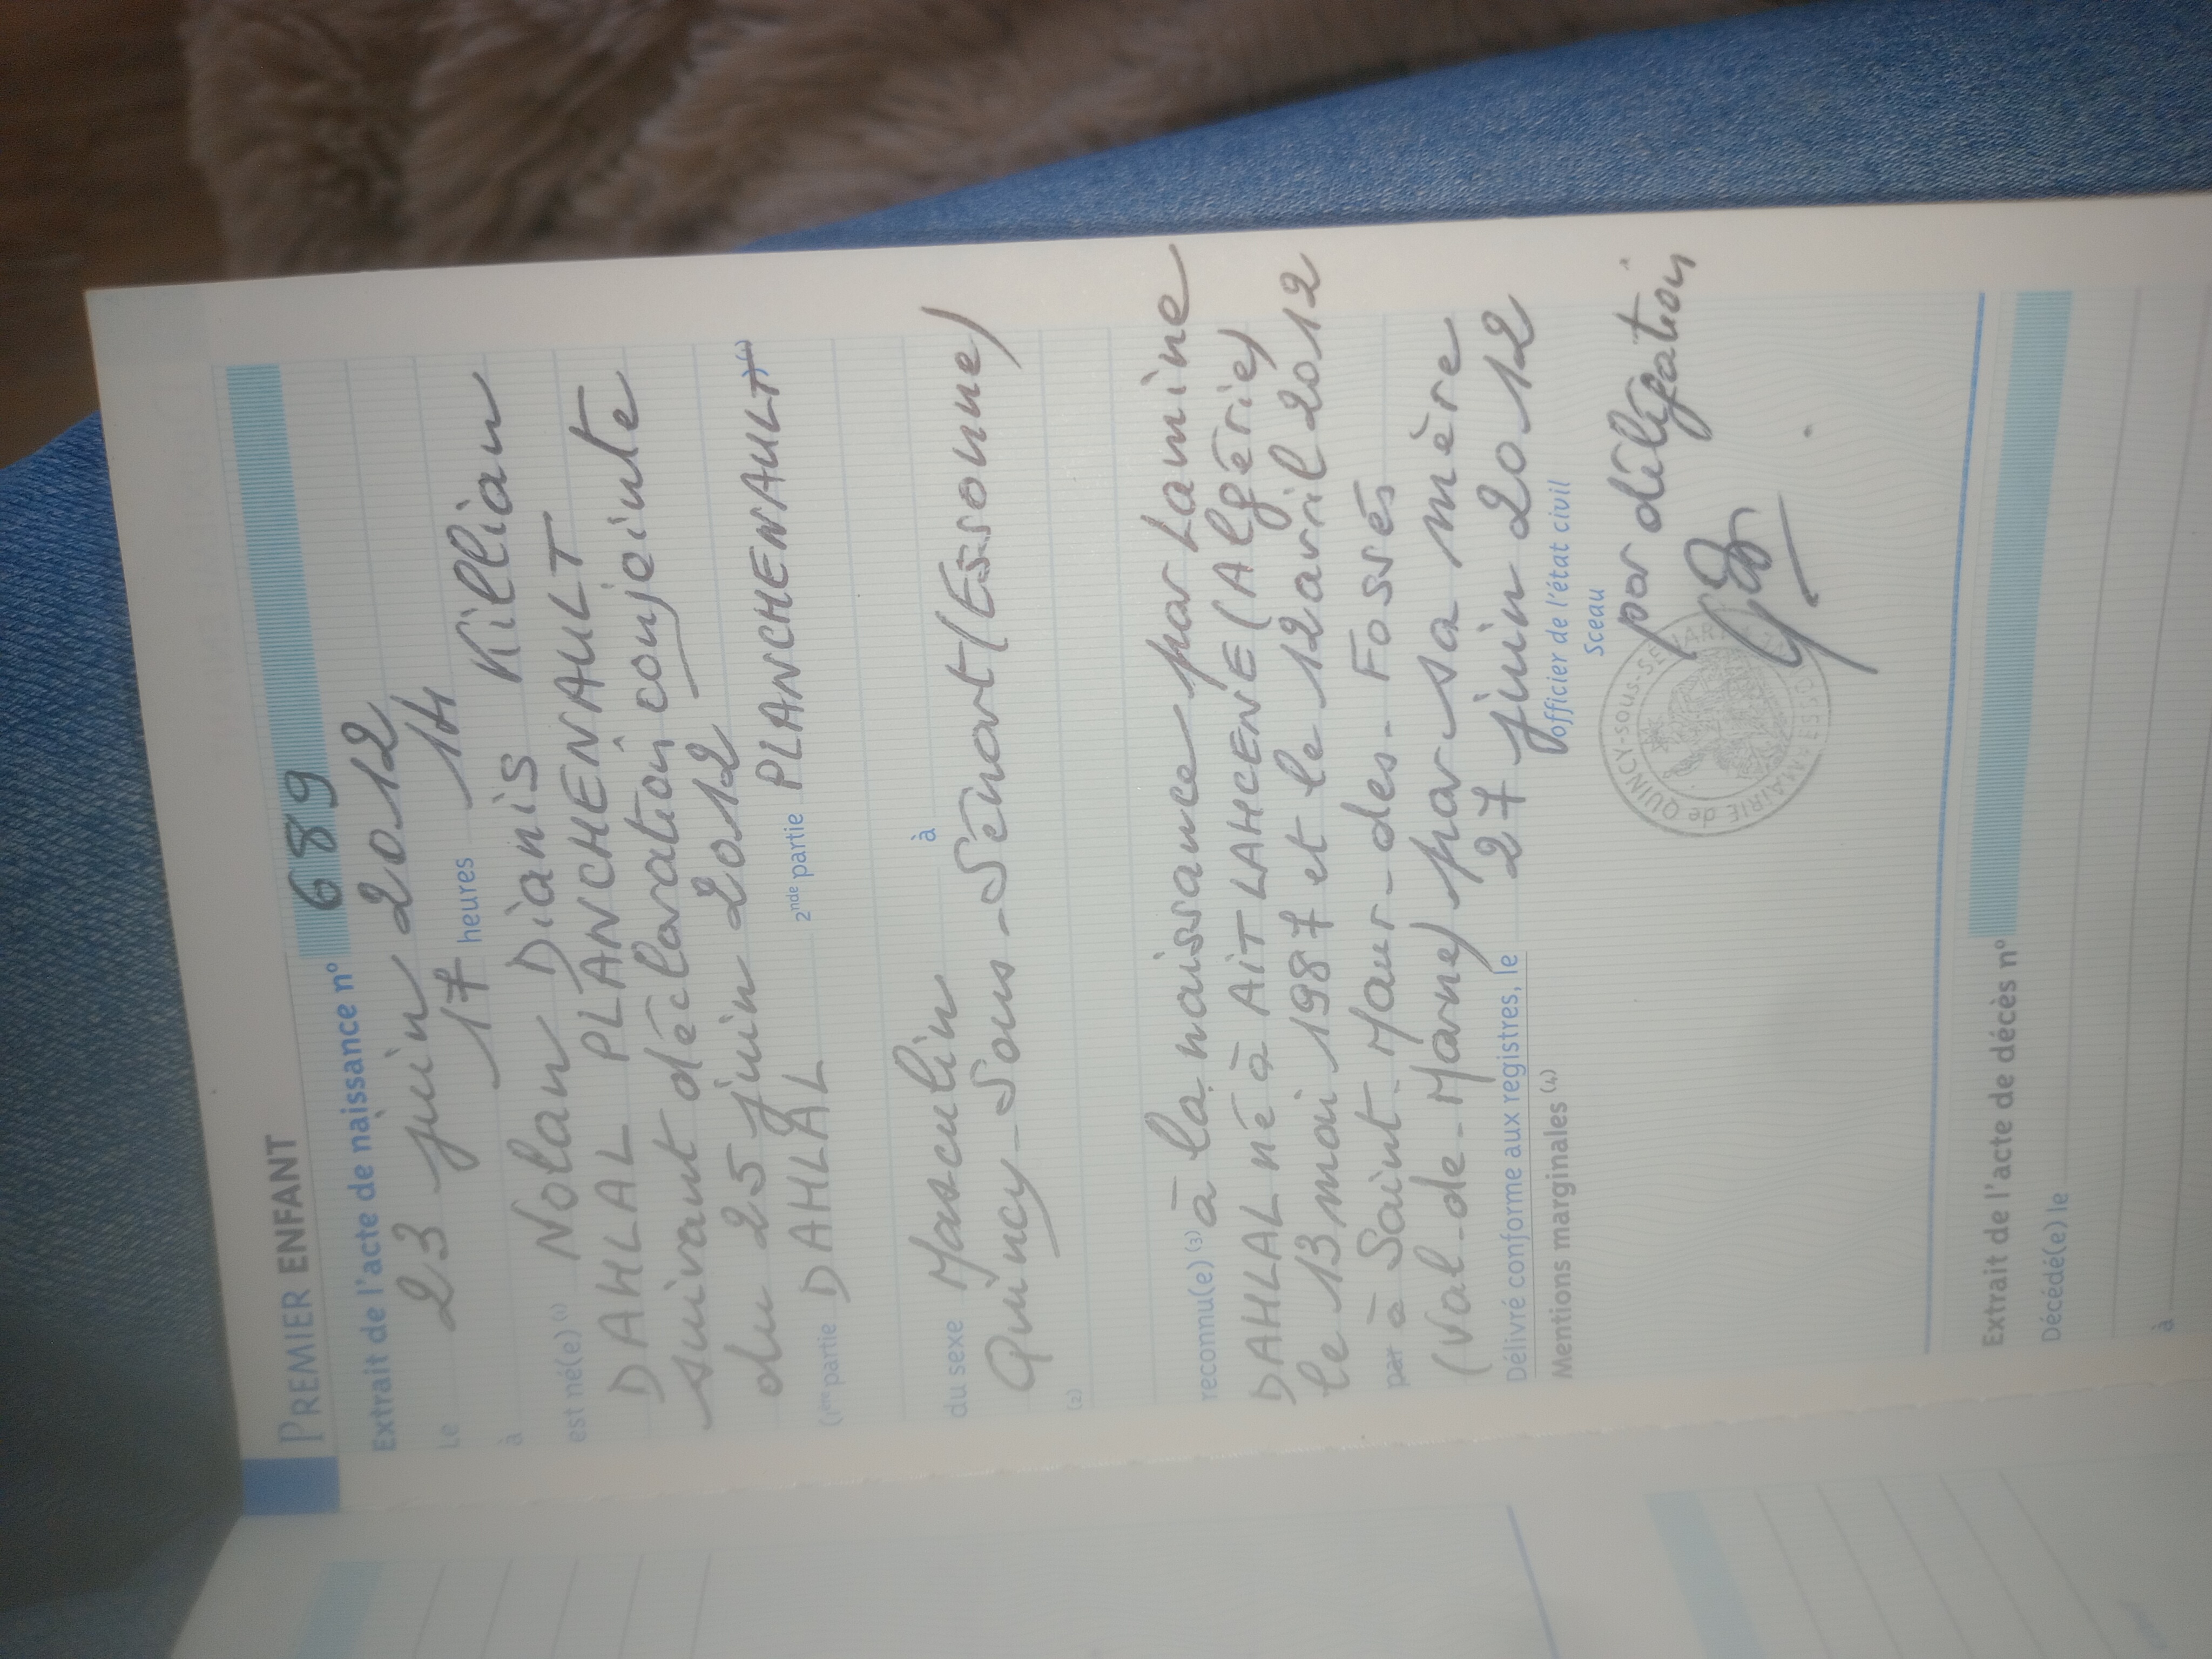 PREMIER ENFANT
Extrait de l'acte de naissance n° 689
Le 23 juin 2012
à 17 heures 14
est né(e) (1) Nolan Dianis Killian
DAHLAL PLANCHENAULT
suivant déclaration conjointe
du 25 juin 2012
(1ère partie DAHLAL 2nde partie PLANCHENAULT)(1)
du sexe Masculin à
Quincy-Sous-Sénart (Essonne)
(2)
reconnu(e) (3) à la naissance par Lamine
DAHLAL né à AIT LAHCENE (Algérie)
le 13 mai 1987 et le 12 avril 2012
par à Saint-Maur-des-Fossés
(Val-de-Marne) par sa mère
Délivré conforme aux registres, le 27 juin 2012
Mentions marginales (4)
l'officier de l'état civil
Sceau
par délégation
MAIRIE de QUINCY-sous-SÉNART
Extrait de l'acte de décès n°
Décédé(e) le
à